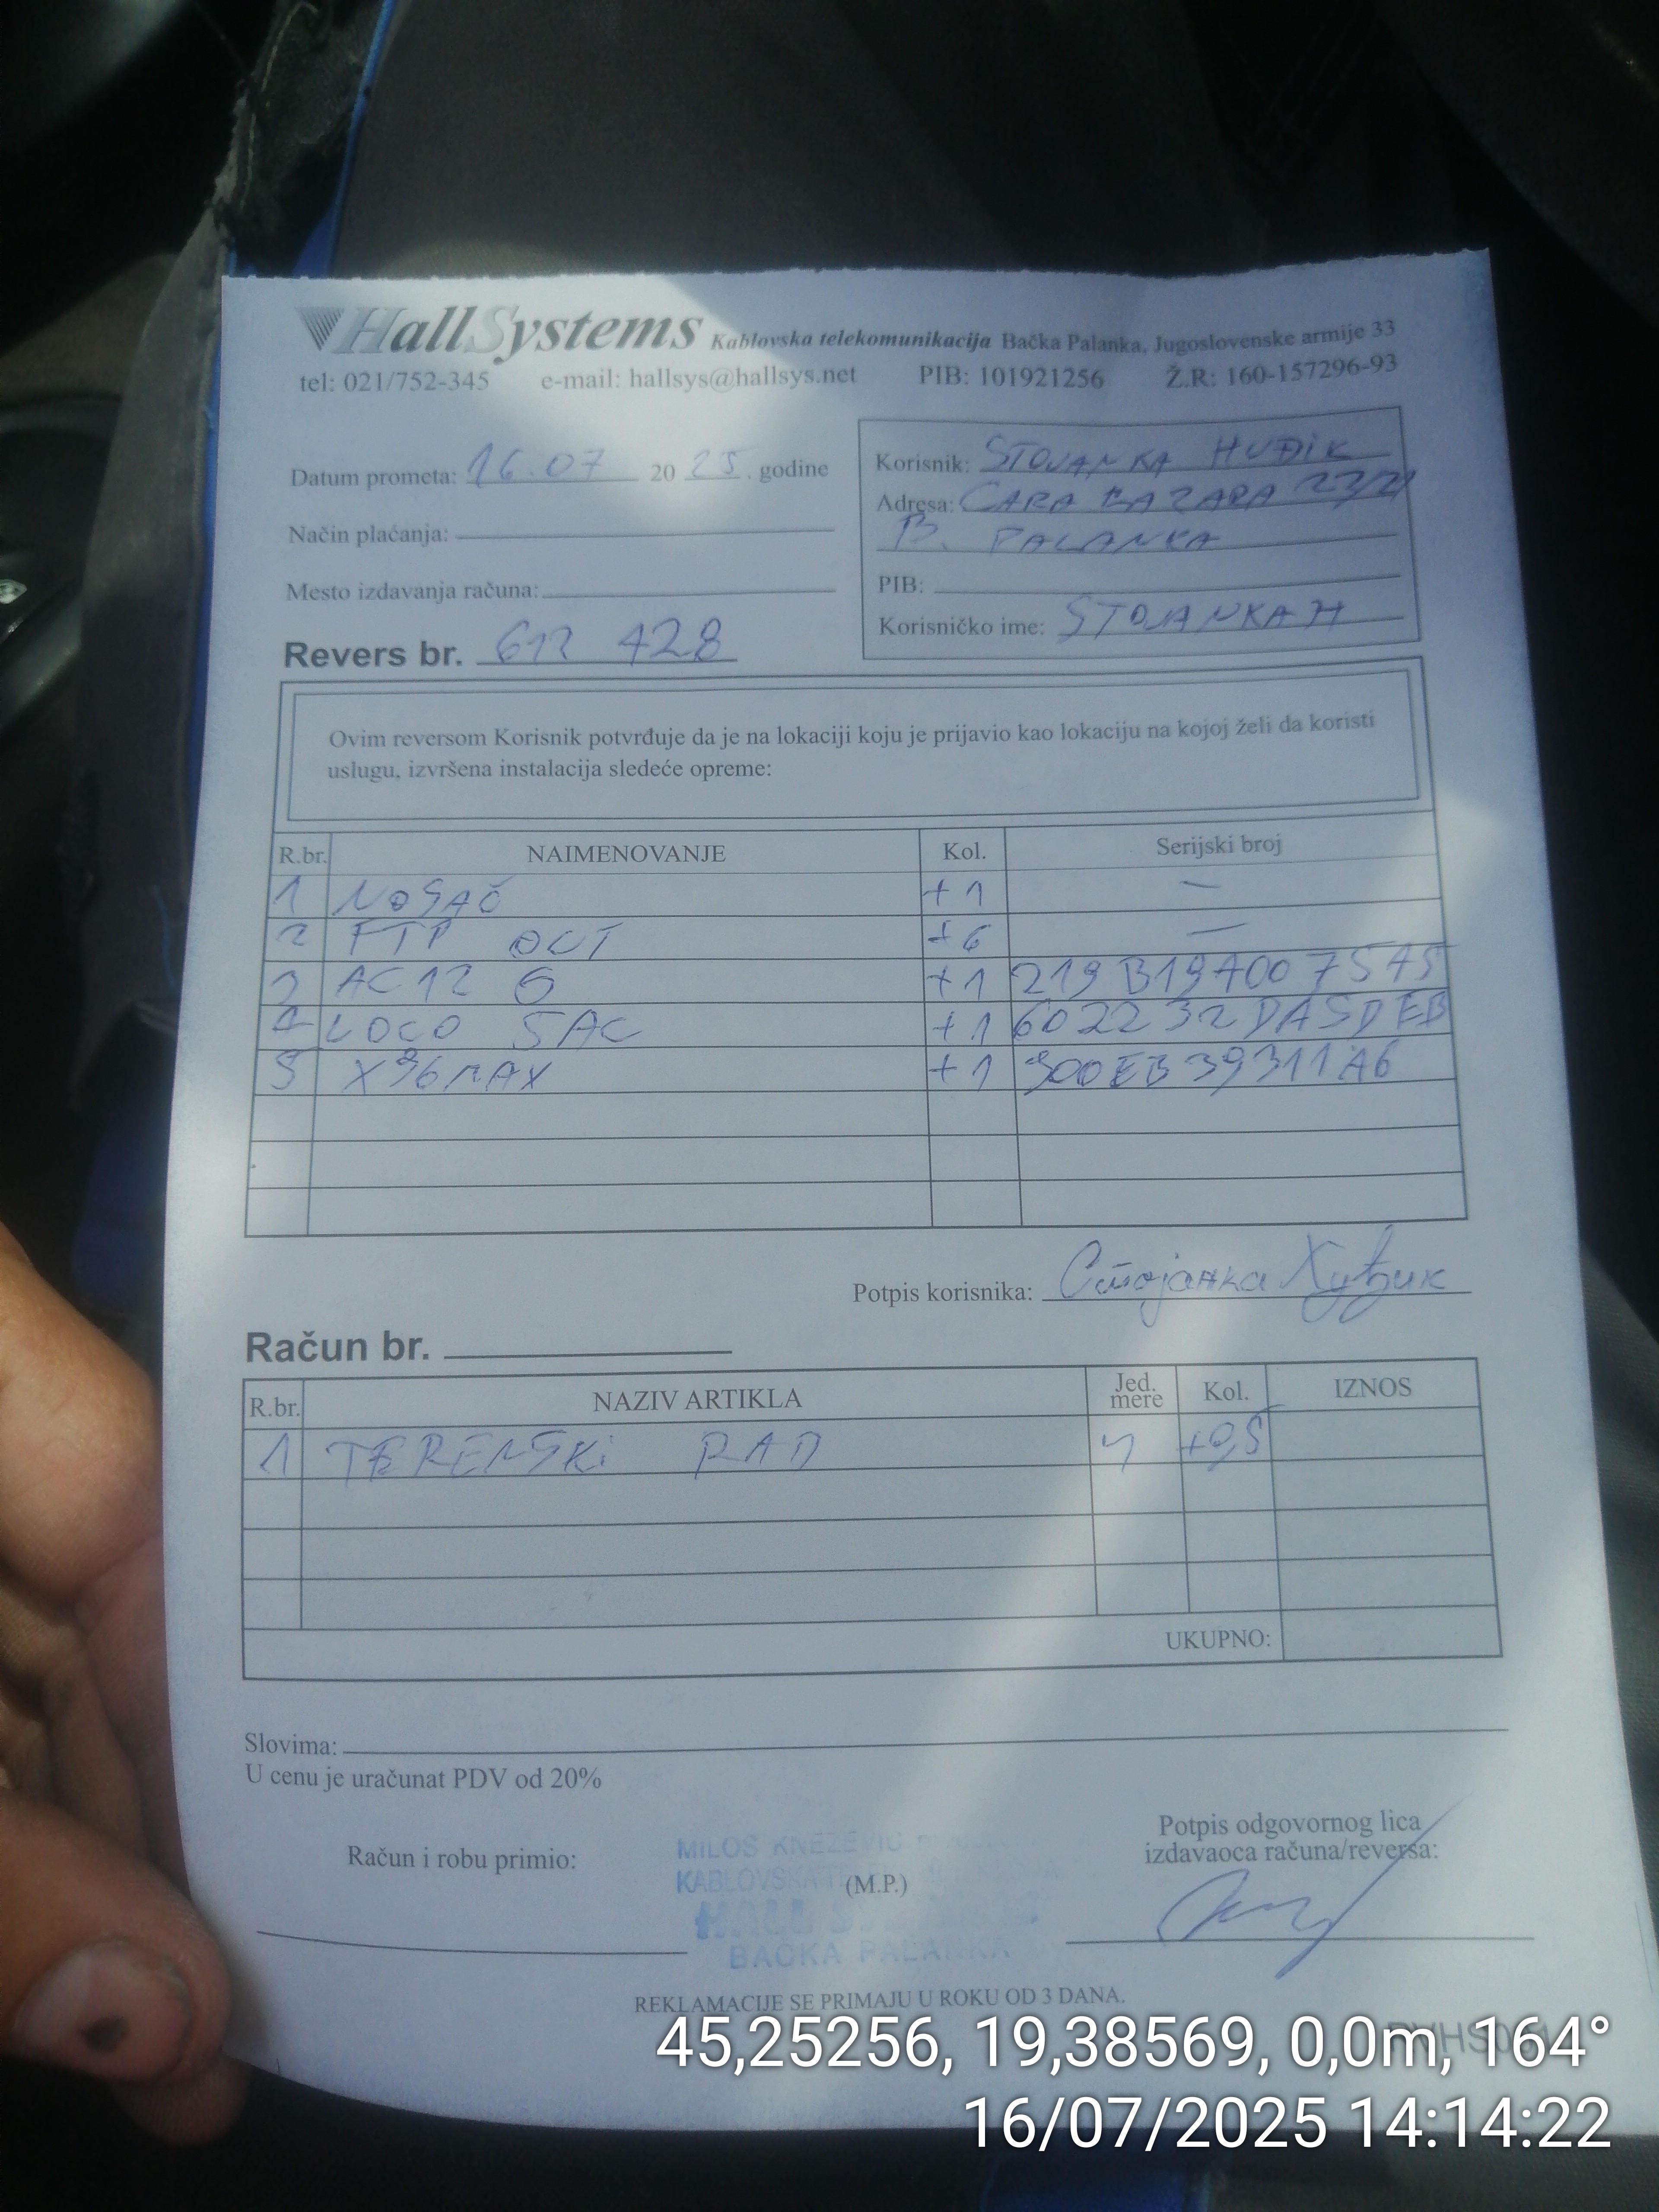 HallSystems Kablovska telekomunikacija Bačka Palanka, Jugoslovenske armije 33
tel: 021/752-345 e-mail: hallsys@hallsys.net PIB: 101921256 Ž.R: 160-157296-93
Datum prometa: 16.07 2025. godine
Način plaćanja:
Mesto izdavanja računa:
Revers br. 612 428
Korisnik: STOJANKA HUĐIK
Adresa: CARA LAZARA 23/21
B. PALANKA
PIB:
Korisničko ime: STOJANKAH
Ovim reversom Korisnik potvrđuje da je na lokaciji koju je prijavio kao lokaciju na kojoj želi da koristi
uslugu, izvršena instalacija sledeće opreme:
R.br. NAIMENOVANJE Kol. Serijski broj
1 NOSAČ +1 —
2 FTP OUT +6 —
3 AC12 G +1 219B194007545
4 LOCO 5AC +1 602232DA5DEB
5 X96MAX +1 900EB39311A6
Potpis korisnika: Стојанка Хуђик
Račun br.
R.br. NAZIV ARTIKLA Jed. mere Kol. IZNOS
1 TERENSKi RAD +0,5
UKUPNO:
Slovima:
U cenu je uračunat PDV od 20%
Račun i robu primio:
MILOS KNEZEVIC
KABLOVSKA
(M.P.)
HALL
BAČKA PALANKA
Potpis odgovornog lica
izdavaoca računa/reversa:
REKLAMACIJE SE PRIMAJU U ROKU OD 3 DANA.
45,25256, 19,38569, 0,0m, 164°
16/07/2025 14:14:22